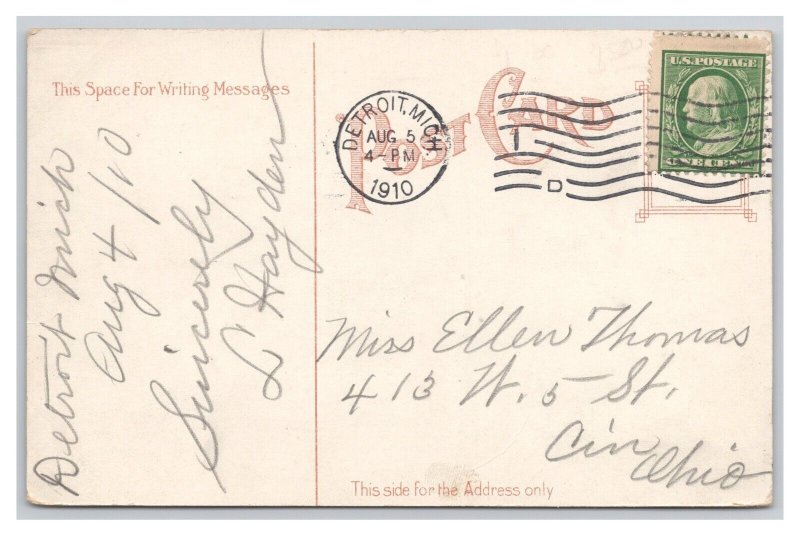 This Space For Writing Messages
Detroit Mich
Aug 4/10
Sincerely
L Hayden
POST CARD
DETROIT, MICH.
AUG 5
4-PM
1910
1
D
U.S. POSTAGE
ONE CENT
Miss Ellen Thomas
413 W. 5 St.
Cin Ohio
This side for the Address only